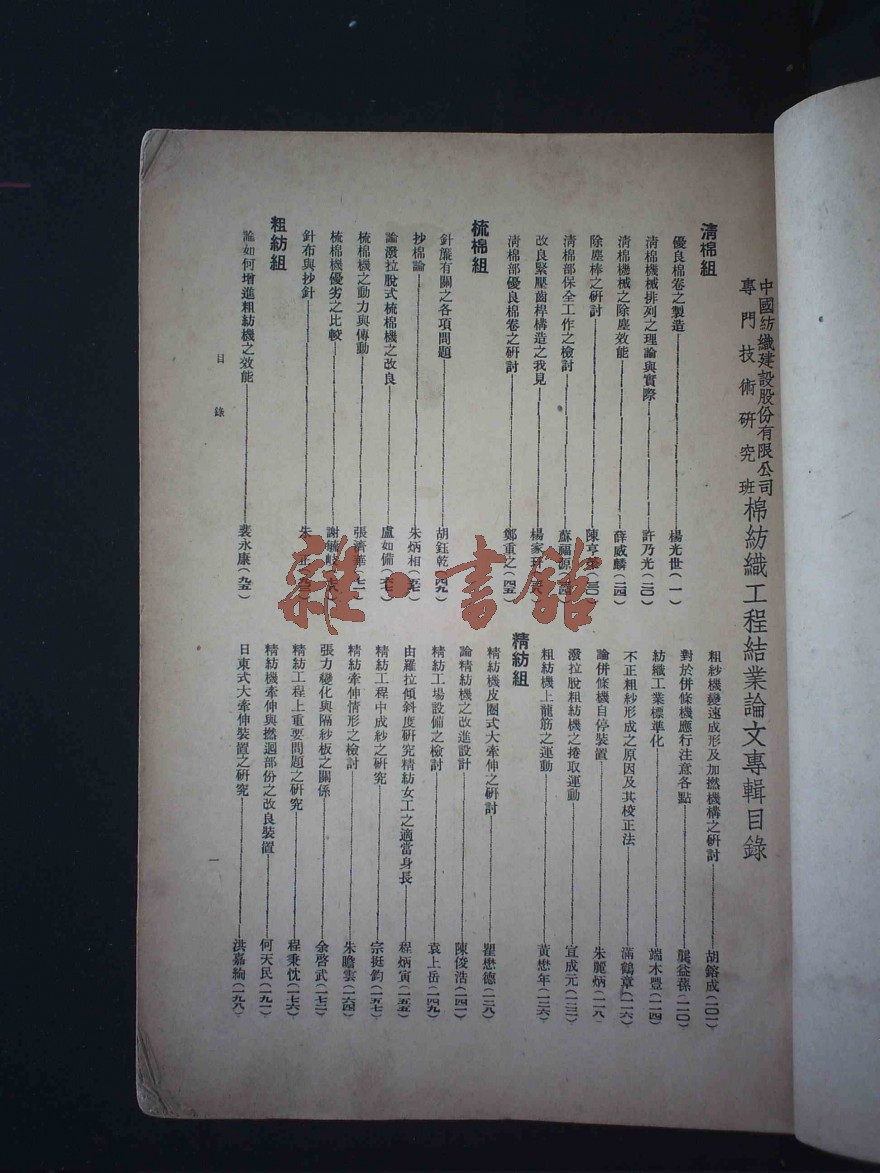 中國紡織建設股份有限公司
專門技術研究班
棉紡織工程結業論文專輯目錄
清棉組
優良棉卷之製造 楊光世(一)
清棉機械排列之理論與實際 許乃光(一〇)
清棉機械之除塵效能 薛威麟(二四)
除塵棒之研討 陳亨
清棉部保全工作之檢討 蘇福源
改良緊壓齒桿構造之我見 楊家
清棉部優良棉卷之研討 鄭重之(四五)
梳棉組
針簾有關之各項問題 胡鈺乾(四九)
抄棉論 朱炳相
論潑拉脫式梳棉機之改良 盧如備
梳棉機之動力與傳動 張濟華(七二)
梳棉機優劣之比較 謝毓
針布與抄針 朱正
粗紡組
論如何增進粗紡機之效能 裴永康(九五)
粗紗機變速成形及加撚機構之研討 胡鎔成(一〇一)
對於併條機應行注意各點 龔益葆(一一〇)
紡織工業標準化 端木豐(一一四)
不正粗紗形成之原因及其校正法 滿鶴章(一一六)
論併條機自停裝置 朱麗炳(一一八)
潑拉脫粗紡機之捲取運動 宣成元(一二三)
粗紡機上龍筋之運動 黃懋年(一三六)
精紡組
精紡機皮圈式大牽伸之研討 瞿懋德(一三八)
論精紡機之改進設計 陳俊浩(一四二)
精紡工場設備之檢討 袁上岳(一四九)
由羅拉傾斜度研究精紡女工之適當身長 程炳寅(一五五)
精紡工程中成紗之研究 宗挺鈞(一五七)
精紡牽伸情形之檢討 朱瞻雲(一六四)
張力變化與隔紗板之關係 余啓武(一七二)
精紡工程上重要問題之研究 程秉忱(一七六)
精紡機牽伸與撚迴部份之改良裝置 何天民(一九一)
日東式大牽伸裝置之研究 洪嘉絢(一九八)
目錄
一
雜·書館